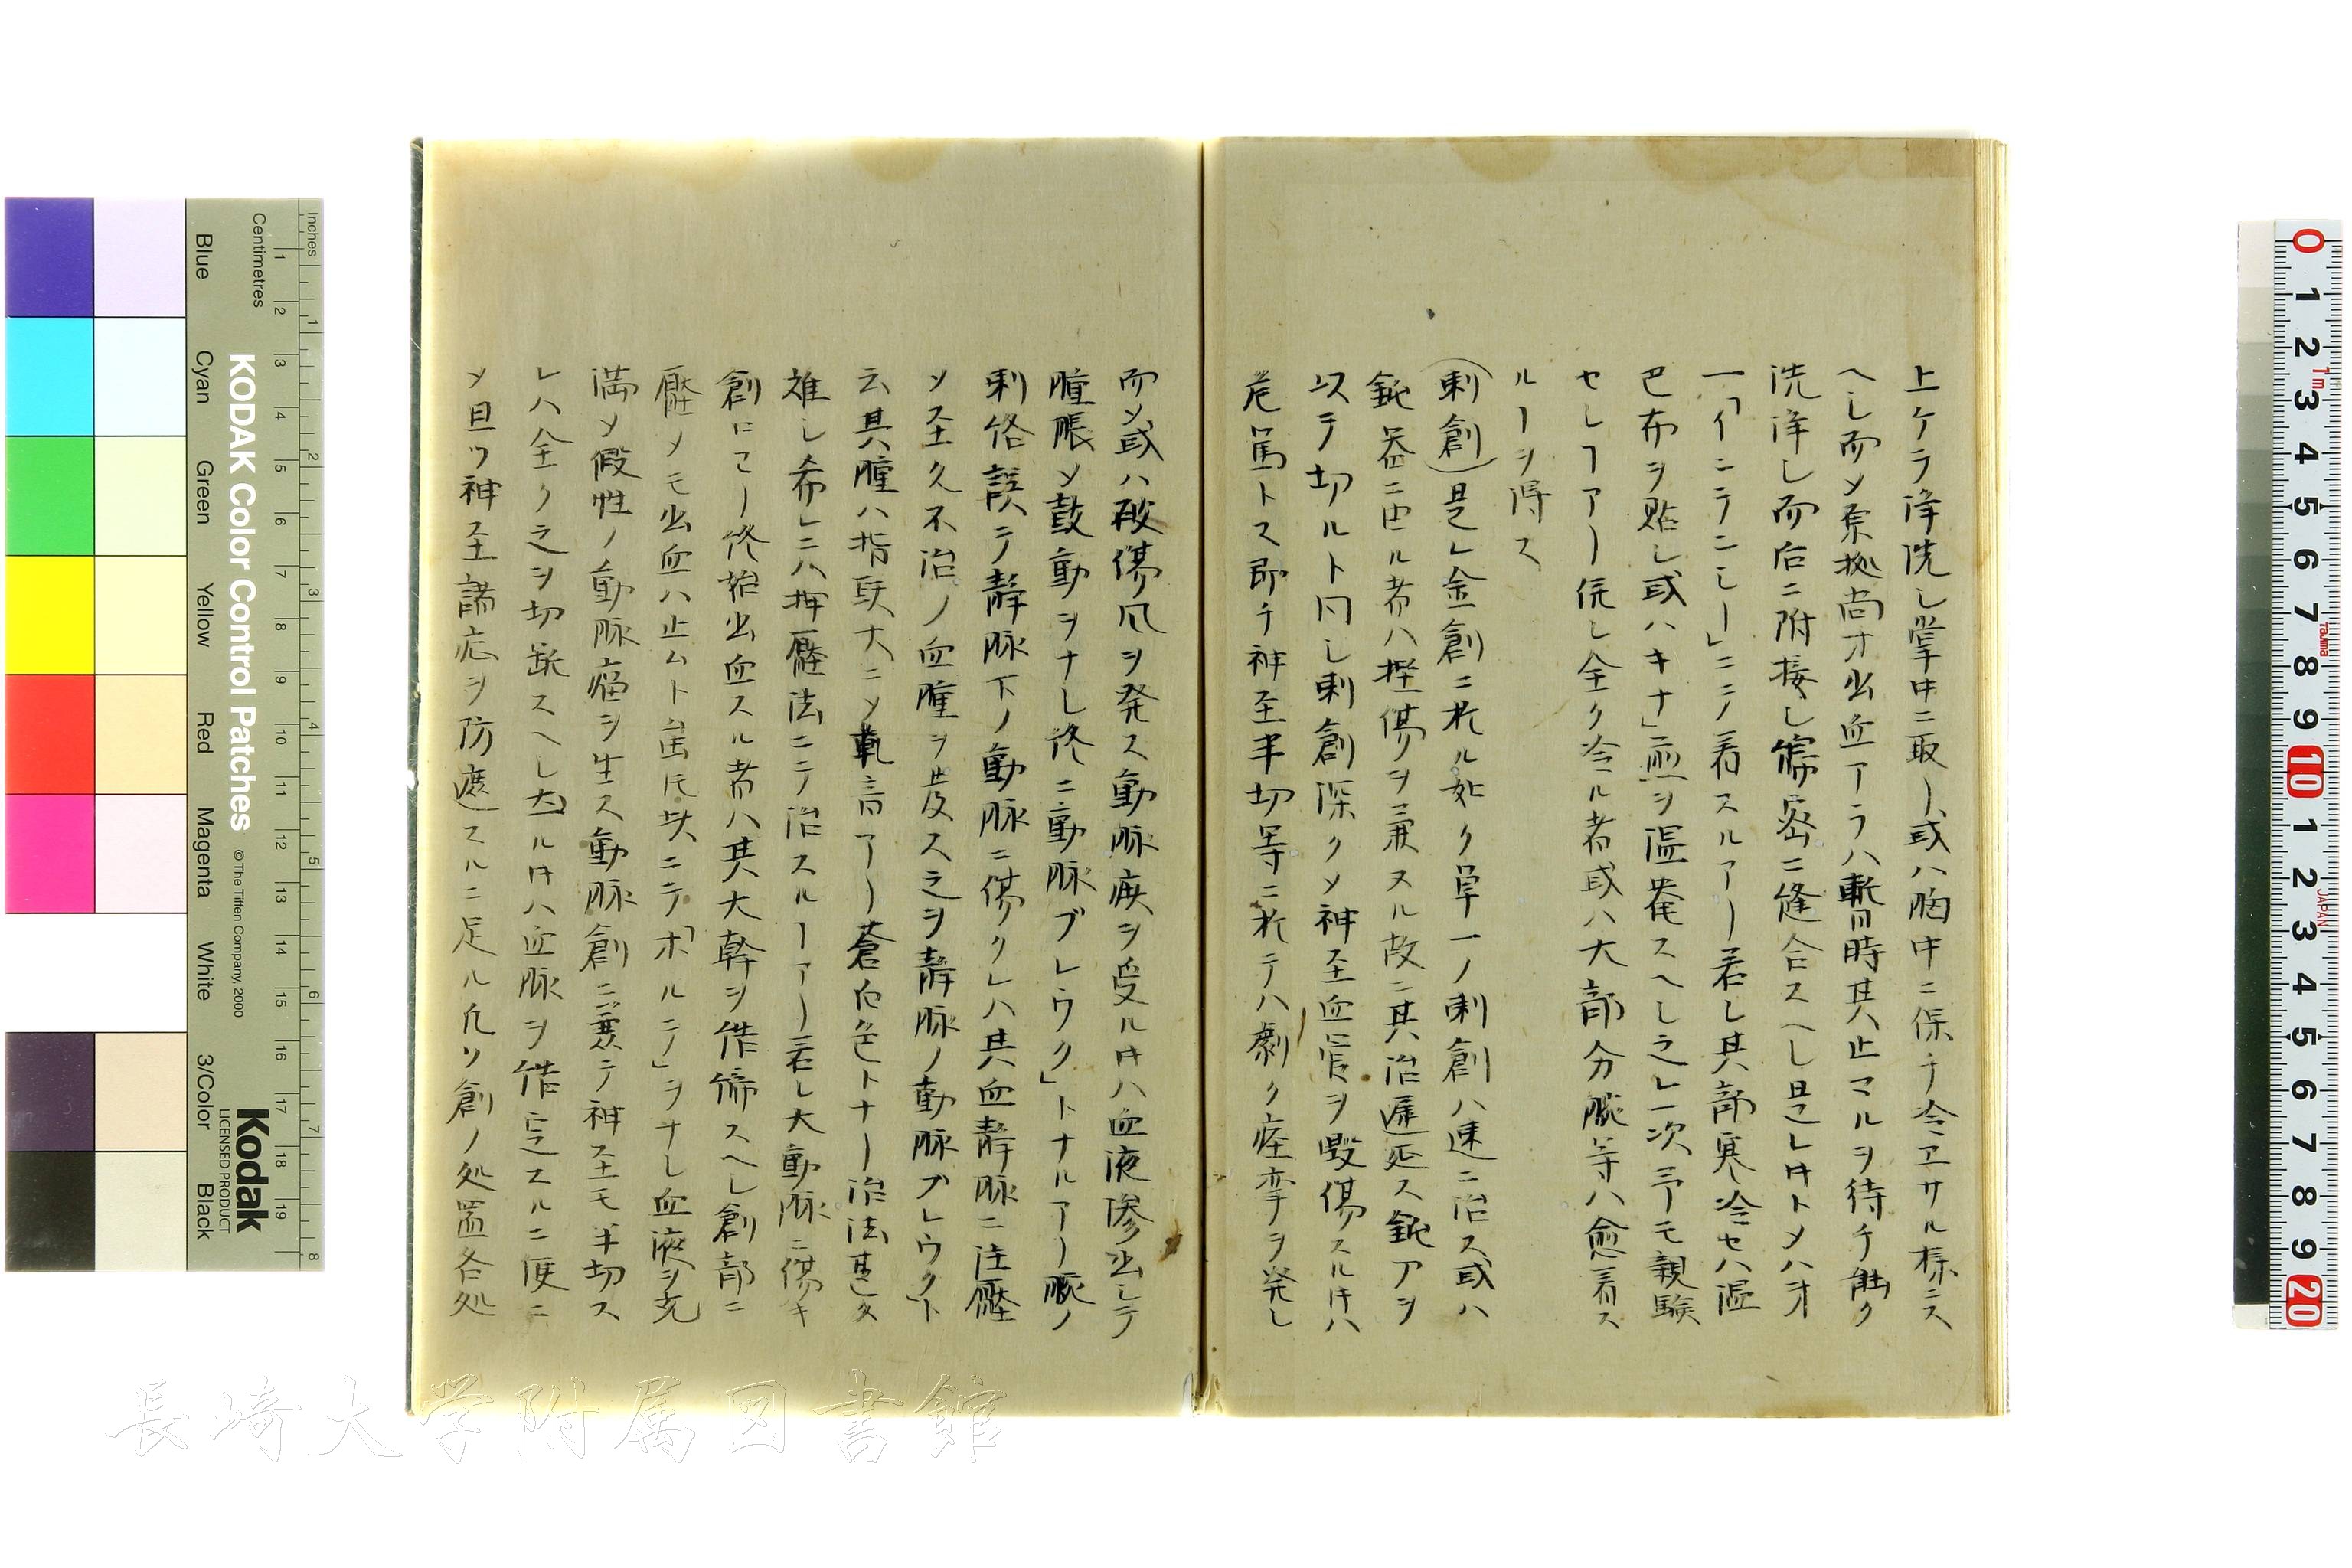 上ケテ浄洗し掌中ニ取ー或ハ胸中ニ保チ冷エサル様ニス
へし而〆 尚才出血アラハ暫時其止マルヲ待チ能ク
洗浄し而后ニ附接し 密ニ縫合スへし是レ トメハ才
一「インテンシー」ニテ着スルアー若し其部寒冷セハ温
巴布ヲ貼し或ハキナ」 ヲ温菴スへし之レ一次 モ親験
セしヿアー 全ク冷ル者或ハ大部分 等ハ愈着ス
ルヿヲ得ス
(刺創)是レ金創ニ於ル如ク単一ノ刺創ハ速ニ治ス或ハ
鈍器ニ由ル者ハ挫傷ヲ兼スル故ニ其治遅延ス鈍 ヲ
以テ切ルト同し刺創深ク〆神至血管ヲ毀傷スル ハ
危篤トス即チ神至半切等ニ於テハ劇ク痙挛ヲ発し
而〆或ハ破傷風ヲ発ス動脈疾ヲ受ル ハ血液滲出シテ
腫脹〆鼓動ヲナし終ニ動脈ブレウク」トナルアー 腕ノ
刺絡誤テ静脈下ノ動脈ニ傷クレハ其血静脈ニ注壓
〆至久不治ノ血腫ヲ発ス之ヲ静脈ノ動脈ブレウク」ト
云其腫ハ指 大ニ〆 音アー蒼白色トナー治法甚タ
難し希レニハ挥壓法ニテ治スルヿアー若し大動脈ニ傷キ
創 終始出血スル者ハ其大幹ヲ スへし創部ニ
壓〆モ出血ハ止ムト 民共ニテ「ホルテ」ヲナし血液ヲ充
満〆假性ノ動脈瘤ヲ生ス動脈創ニ兼テ神至モ半切ス
レハ全ク之ヲ切断スへし ル ハ血脈ヲ 定スルニ便ニ
〆且ツ神至諸症ヲ防遮スルニ足ル凡ソ創ノ処置各処
Inches
Centimetres
KODAK Color Control Patches
© The Tiffen Company, 2000
Kodak
LICENSED PRODUCT
Blue
Cyan
Green
Yellow
Red
Magenta
White
3/Color
Black
長崎大学附属図書館